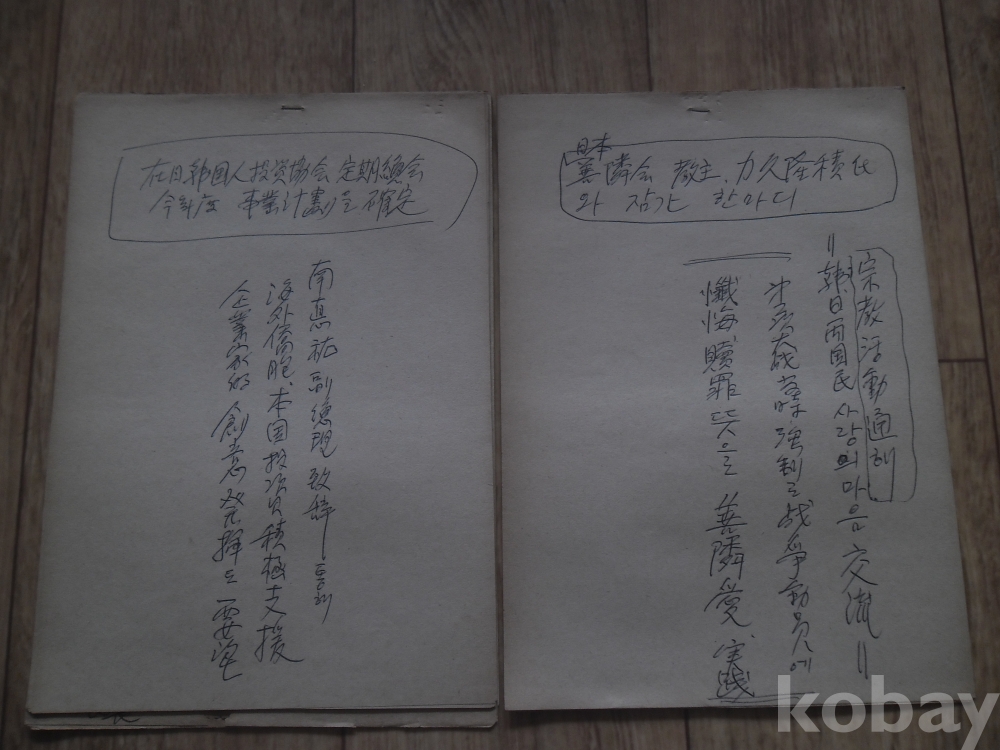 在日韓国人投資協会 定期総会
今年度 事業計劃을 確定
南悳祐副總理 致辞 통해
海外僑胞 本国投資 積極支援
企業家的 創意発揮도 要望
日本
善隣会 教主、力久隆積氏
와 잠간 한마디
宗教活動通해
〃韓日両国民 사랑의 마음 交流〃
強制로 戦争動員에
懺悔贖罪 뜻을 善隣愛 実践
kobay